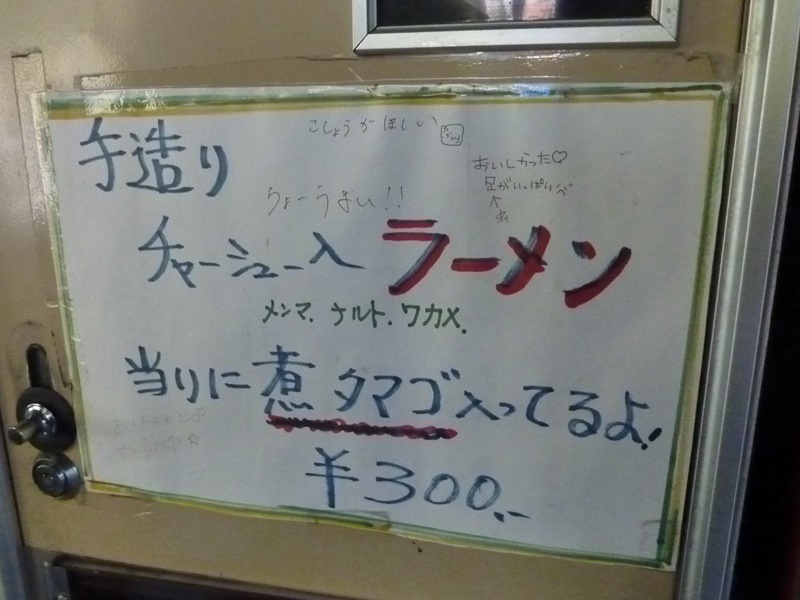 手造り
こしょうがほしい
おいしかった♡
足がいっぱい
虫
ちょーうまい!!
チャーシュー入ラーメン
メンマ.ナルト.ワカメ.
当りに煮タマゴ入ってるよ!
¥300.-